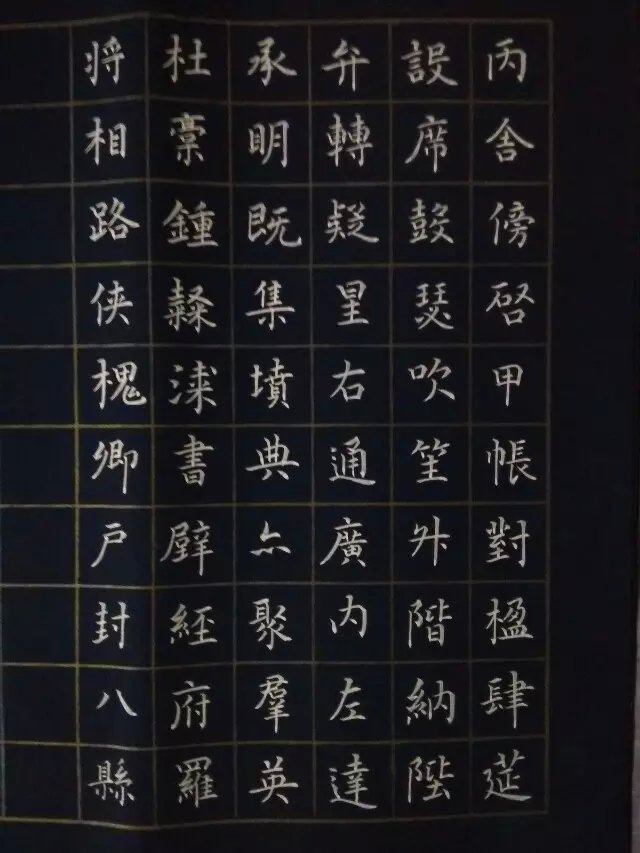 丙舍傍啓甲帳對楹肆莚
設席鼓瑟吹笙升階納陛
弁轉疑星右通廣內左達
承明既集墳典亦聚羣英
杜稾鍾隸漆書壁經府羅
将相路侠槐卿戶封八縣